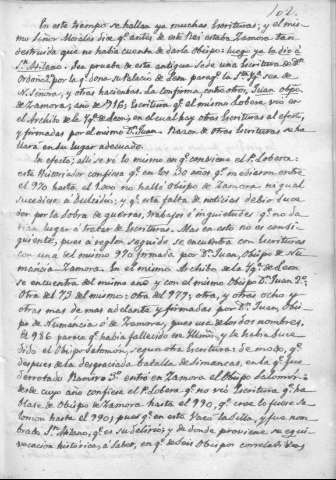 102.
En este tiempo se hallan ya muchas Escrituras; y el mis-
mo Señor Morales dice qe. antes de este Rei estaba Zamora tan
destruida que no habia cuenta de darle Obispo: luego ya lo dio á
Sn. Atilano. Sea prueba de esta antigua Sede una Escritura de Dn.
Ordoño 2º por la qe. dona su Palacio de Leon para qe. la Sta. Iga. sea de
N. Señora, y otras haciendas. La confirma, entre otros, Juan obpo.
de Zamora, año de 916; Escritura qe. el mismo Lobera vió en
el Archibo de la Iga. de Leon; en el cual hay otras Escrituras al efecto,
y firmadas por el mismo Dn. Juan. Razon de otras Escrituras se ha-
llará en su lugar adecuado.
En efecto; alli se vé lo mismo en qe. conviene el P. Lobera:
este Historiador confiesa qe. en los 30 años qe. mediaron entre
el 970 hasta el 1000 no halló Obispo de Zamora ni qual
sucediese á Dulcidio; y qe. esta falta de noticias debio suce-
der por la sobra de guerras, trabajos é inquietudes qe. no da-
rian lugar á tratar de Escrituras. Mas en esto no es consi-
guiente, pues á reglon seguido se encuentra con Escrituras
con una del mismo 970 firmada por Dn. Juan, Obispo de Nu-
mancia Zamora. En el mismo Archibo de la Iga. de Leon
se encuentra del mismo año y con el mismo Obispo Dn. Juan 2º.
Otra del 73 del mismo: otra del 977; otra, y otras ocho y
otras mas de mas adelante y firmadas por Dn. Juan, Obis-
po de Numancia ó de Zamora, pues usa de los dos nombres.
El 986 parece qe. habia fallecido en y le habia suce-
dido el Obispo Salomon, segun otra Escritura: de modo, qe.
despues de la desgraciada batalla de Simancas, en la qe. fue
derrotado Ramiro 3º entró en Zamora el Obispo Salomon:
desde cuyo año confiesa el P. Lobera qe. no vió Escritura qe. ha-
blase de Obispo de Zamora hasta el 990, qe. cree lo fuese Sa-
lomon hasta el 990; pues qe. en este Vaco la Silla, y fue nom-
brado Sn. Atilano, qe. es su delirio; y de donde proviene su equi-
vocacion histórica, á saber, en qe. de seis Obispos correlativos